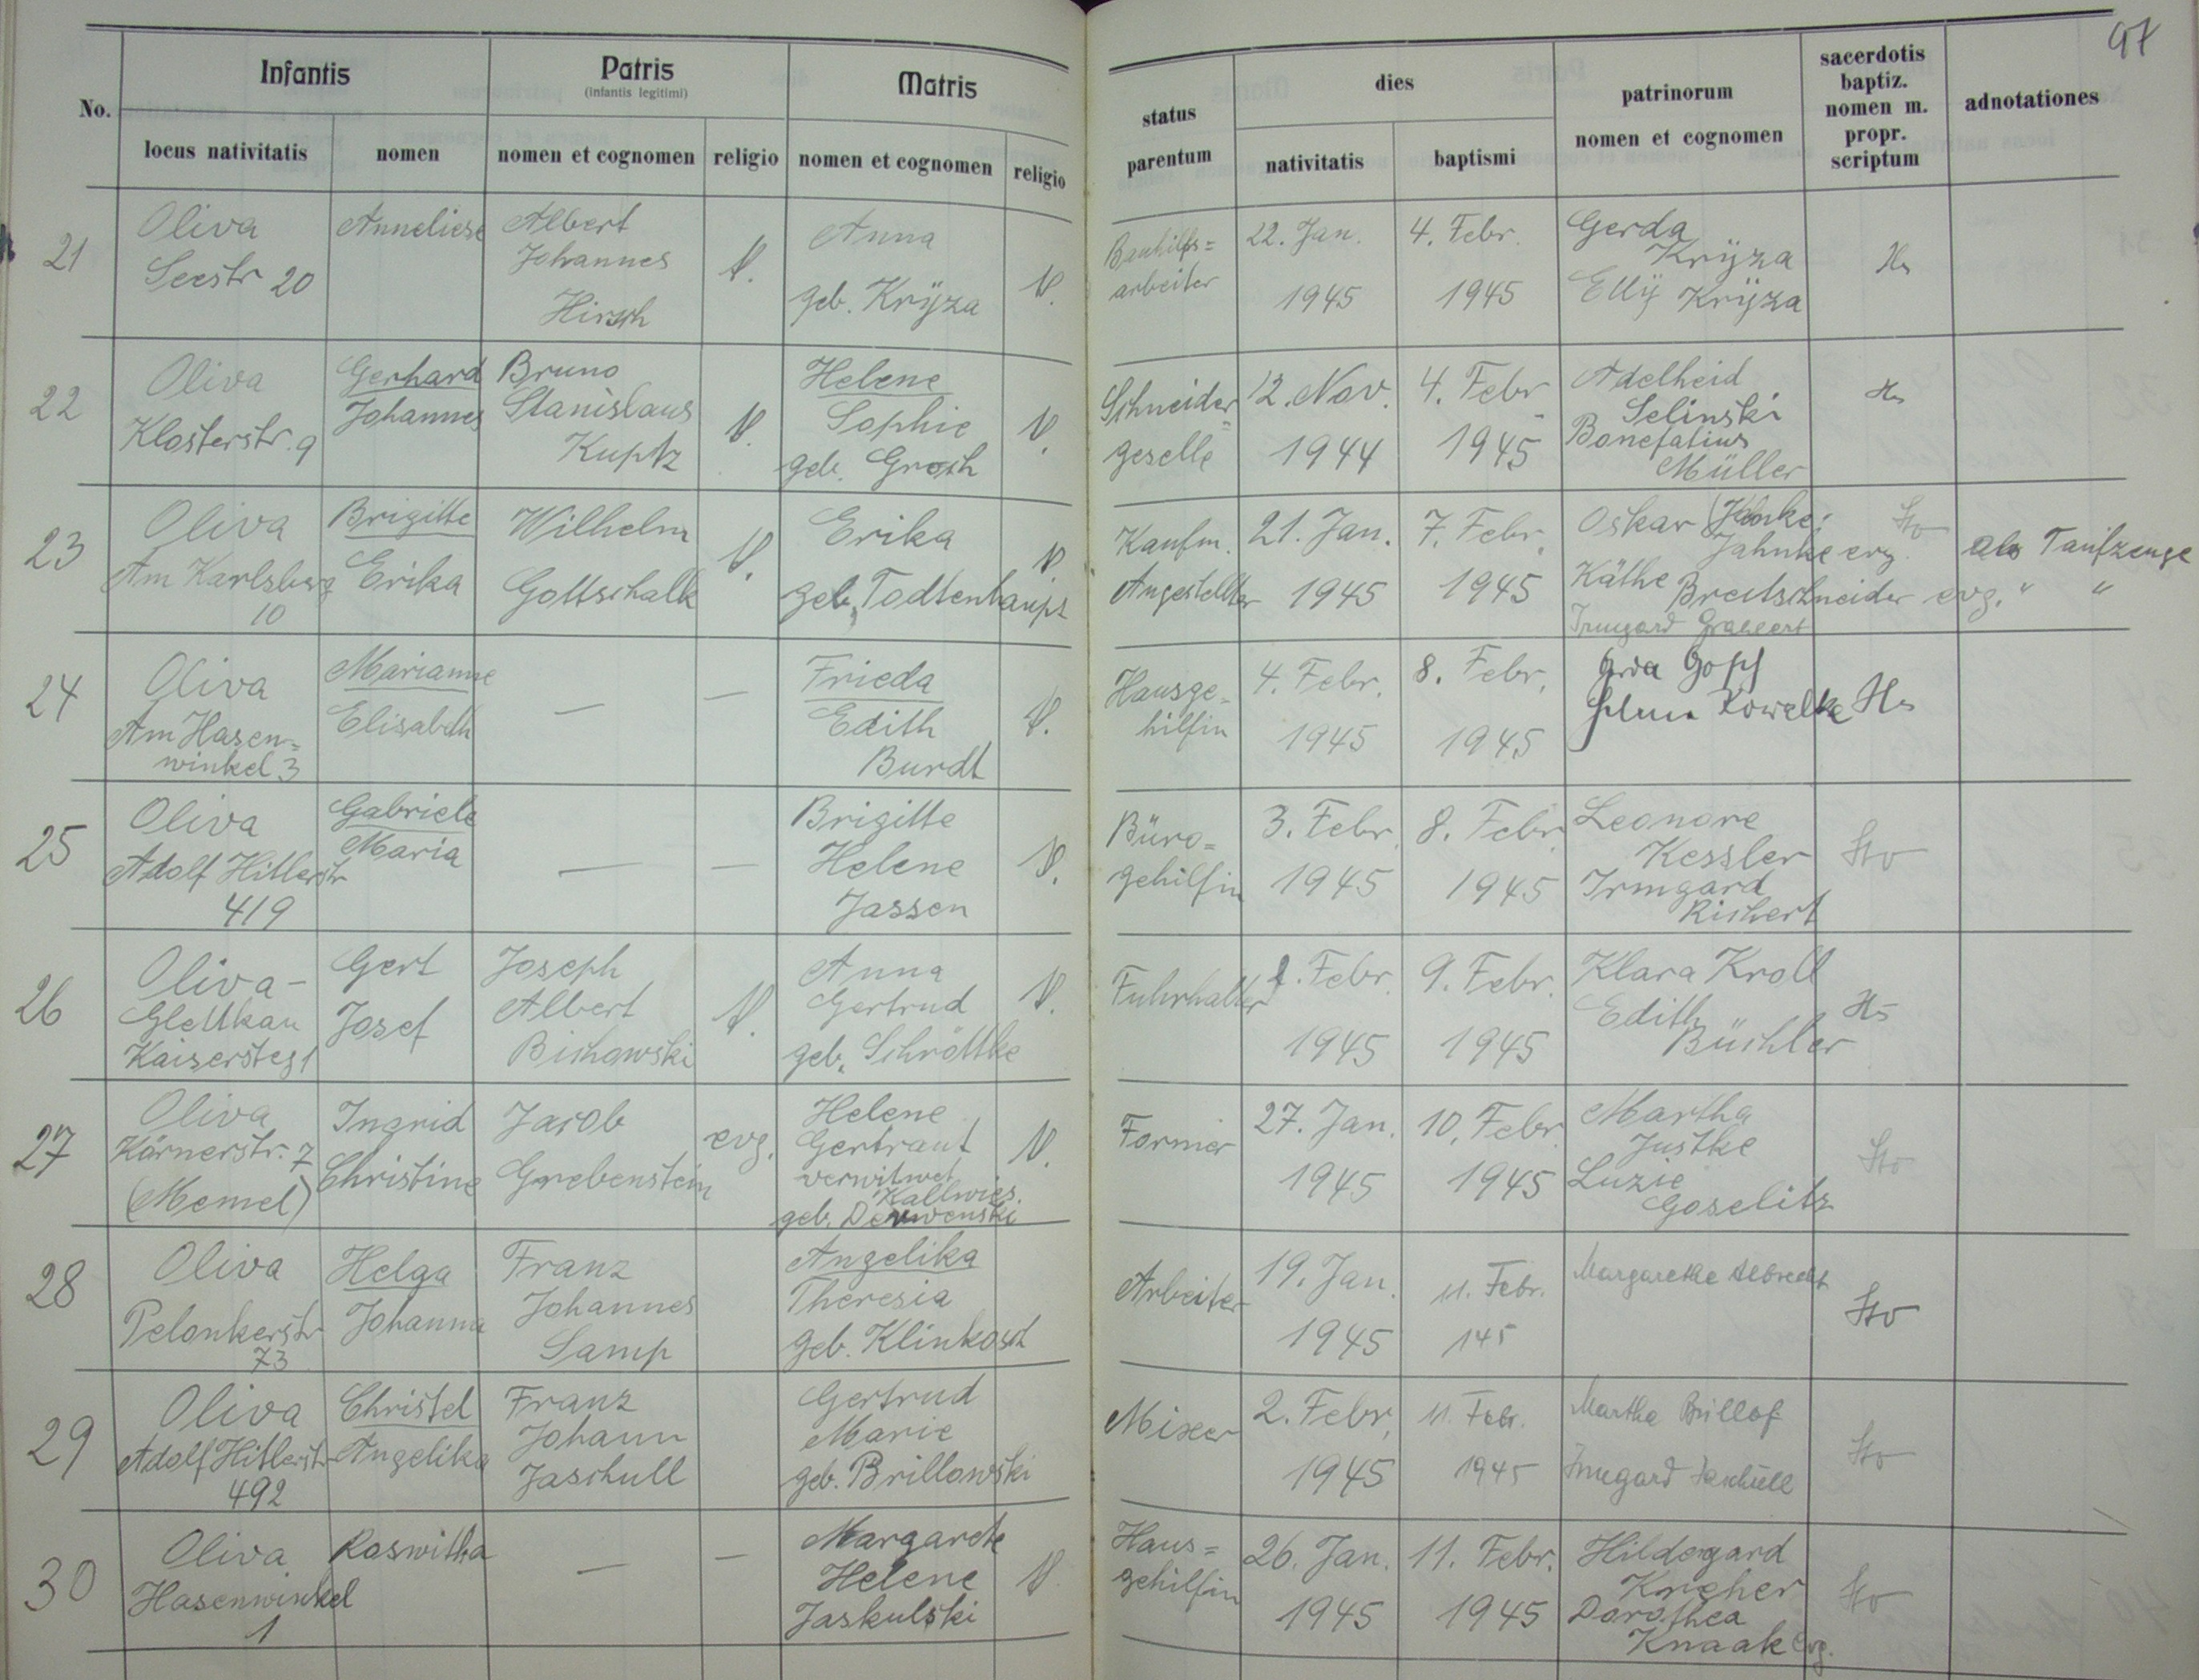 97
No.
Infantis
Patris
(infantis legitimi)
Matris
status
parentum
dies
patrinorum
nomen et cognomen
sacerdotis
baptiz.
nomen m.
propr.
scriptum
adnotationes
locus nativitatis
nomen
nomen et cognomen
religio
nomen et cognomen
religio
nativitatis
baptismi
21
Oliva
Seestr 20
Anneliese
Albert
Johannes
Hirsch
Anna
geb. Krÿza
Bauhilfs=
arbeiter
22. Jan.
1945
4. Febr.
1945
Gerda
Krÿza
Ellÿ Krÿza
22
Oliva
Klosterstr. 9
Gerhard
Johannes
Bruno
Stanislaus
Kuptz
Helene
Sophie
geb. Grosch
Schneider=
geselle
12. Nov.
1944
4. Febr.
1945
Adelheid
Selinski
Bonefatius
Müller
23
Oliva
Am Karlsberg
10
Brigitte
Erika
Wilhelm
Gottschalk
Erika
geb. Todtenhaupt
Kaufm.
Angestellter
21. Jan.
1945
7. Febr.
1945
Oskar
Jahnke evg. als Taufzeuge
Käthe Breitschneider evg. " "
Irmgard
24
Oliva
Am Hasen=
winkel 3
Marianne
Elisabeth
—
—
Frieda
Edith
Burdt
Hausge-
hilfin
4. Febr.
1945
8. Febr.
1945
Kowelke
25
Oliva
Adolf Hitlerstr
419
Gabriele
Maria
—
—
Brigitte
Helene
Jassen
Büro=
gehilfin
3. Febr.
1945
8. Febr.
1945
Leonore
Kessler
Irmgard
Richert
26
Oliva-
Glettkau
Kaisersteg 1
Gert
Josef
Joseph
Albert
Bichowski
Anna
Gertrud
geb. Schröttke
Fuhrhalter
Febr.
1945
9. Febr.
1945
Klara Kroll
Edith
Büchler
27
Oliva
Körnerstr. 7
(Memel)
Ingrid
Christine
Jacob
Grebenstein
evg.
Helene
Gertraut
verwitwet
Kallwies.
geb.
Former
27. Jan.
1945
10. Febr.
1945
Martha
Justke
Luzie
Goselitz
28
Oliva
Pelonkerstr
73
Helga
Johanna
Franz
Johannes
Samp
Angelika
Theresia
geb. Klinkosch
Arbeiter
19. Jan.
1945
11. Febr.
145
Margarethe Albrecht
29
Oliva
Adolf Hitlerstr
492
Christel
Angelika
Franz
Johann
Jaschull
Gertrud
Marie
geb. Brillowski
Mixer
2. Febr.
1945
11. Febr.
1945
Martha
Irmgard Jaschull
30
Oliva
Hasenwinkel
1
Roswitha
—
—
Margarete
Helene
Jaskulski
Haus=
gehilfin
26. Jan.
1945
11. Febr.
1945
Hildegard
Dorothea
Knaak evg.